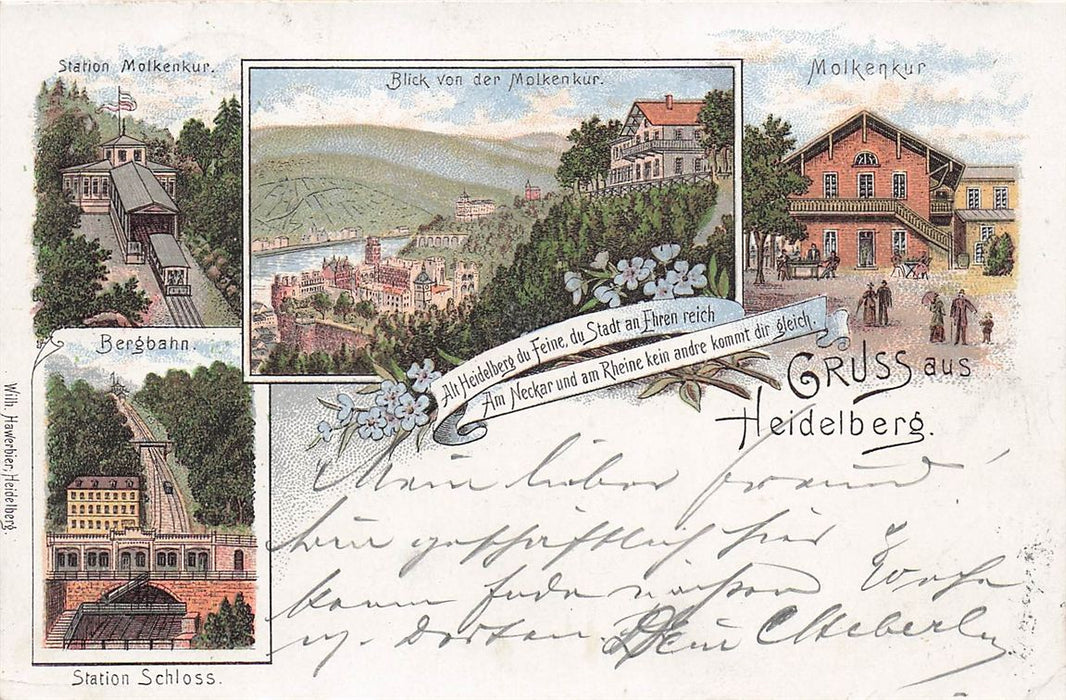 Station Molkenkur.
Blick von der Molkenkur.
Molkenkur
Bergbahn.
Alt Heidelberg du Feine, du Stadt an Ehren reich
Am Neckar und am Rheine kein andre kommt dir gleich.
Gruss aus
Heidelberg.
Wilh. Hawerbier, Heidelberg.
Station Schloss.
Mein lieber Freund!
bin geschäftlich hier
komme nächste Woche
n. dorten. Dein